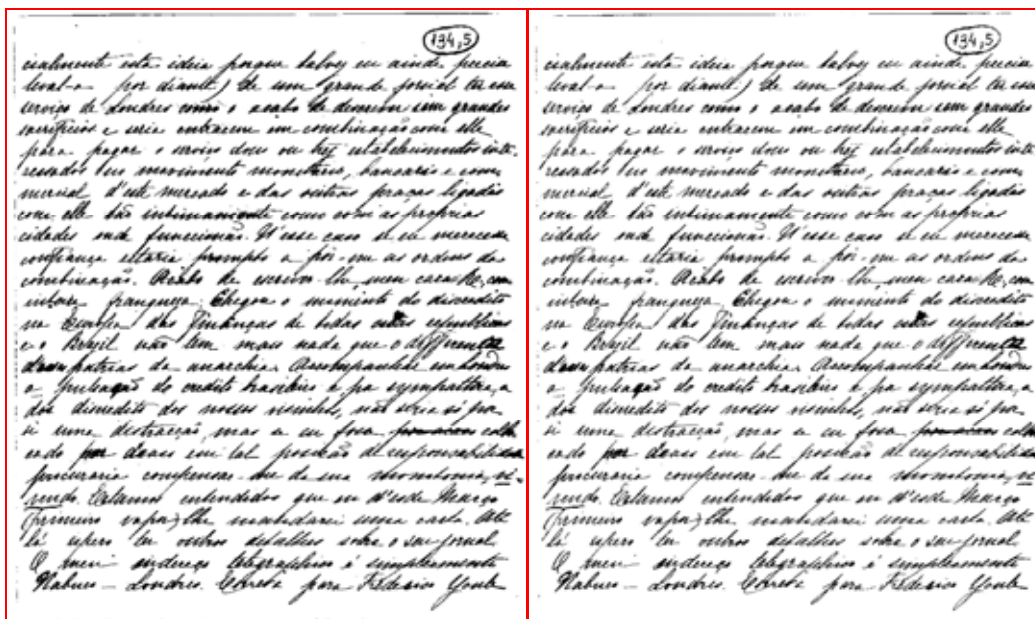 134,5
cialmente esta ideia porque talvez eu ainda precise
leval-a por diante) de um grande jornal ter esse
serviço de Londres como o acabo de descrever sem grandes
sacrificios e seria entrarem em combinação com elle
para pagar o serviço dous ou trez estabelecimentos inte-
ressados no movimento monetario, bancario e com-
mercial d'este mercado e das outras praças ligadas
com elle tão intimamente como com as proprias
cidades onde funccionão. N'esse caso se eu merecesse
confiança estaria prompto a pôr-me as ordens da
combinação. Acabo de escrever-lhe, meu caro R., com
inteira franqueza. Chegou o momento do discredito
na Europa das Finanças de todas estas republicas
e o Brazil não tem mais nada que o differença
d'essas patrias da anarchia. Acompanhar em Londres
a do credito brasileiro e pa sympathia, a
dos discredito dos nossos visinhos, não seria só por
si uma distracção, mas se eu fosse collo-
cado por acaso em tal posição de responsabilidade
procuraria compensar-me da sua monotonia,
Estamos entendidos que eu d'esde Março
(primeiro vapor) lhe mandarei uma carta. Até
lá espero ter outros detalhes sobre o seu jornal
O meu endereço telegraphico é simplesmente
Nabuco – Londres. Correto para Frederico Youle
134,5
cialmente esta ideia porque talvez eu ainda precise
leval-a por diante) de um grande jornal ter esse
serviço de Londres como o acabo de descrever sem grandes
sacrificios e seria entrarem em combinação com elle
para pagar o serviço dous ou trez estabelecimentos inte-
ressados no movimento monetario, bancario e com-
mercial d'este mercado e das outras praças ligadas
com elle tão intimamente como com as proprias
cidades onde funccionão. N'esse caso se eu merecesse
confiança estaria prompto a pôr-me as ordens da
combinação. Acabo de escrever-lhe, meu caro R., com
inteira franqueza. Chegou o momento do discredito
na Europa das Finanças de todas estas republicas
e o Brazil não tem mais nada que o differença
d'essas patrias da anarchia. Acompanhar em Londres
a do credito brasileiro e pa sympathia, a
dos discredito dos nossos visinhos, não seria só por
si uma distracção, mas se eu fosse collo-
cado por acaso em tal posição de responsabilidade
procuraria compensar-me da sua monotonia,
Estamos entendidos que eu d'esde Março
(primeiro vapor) lhe mandarei uma carta. Até
lá espero ter outros detalhes sobre o seu jornal
O meu endereço telegraphico é simplesmente
Nabuco – Londres. Correto para Frederico Youle